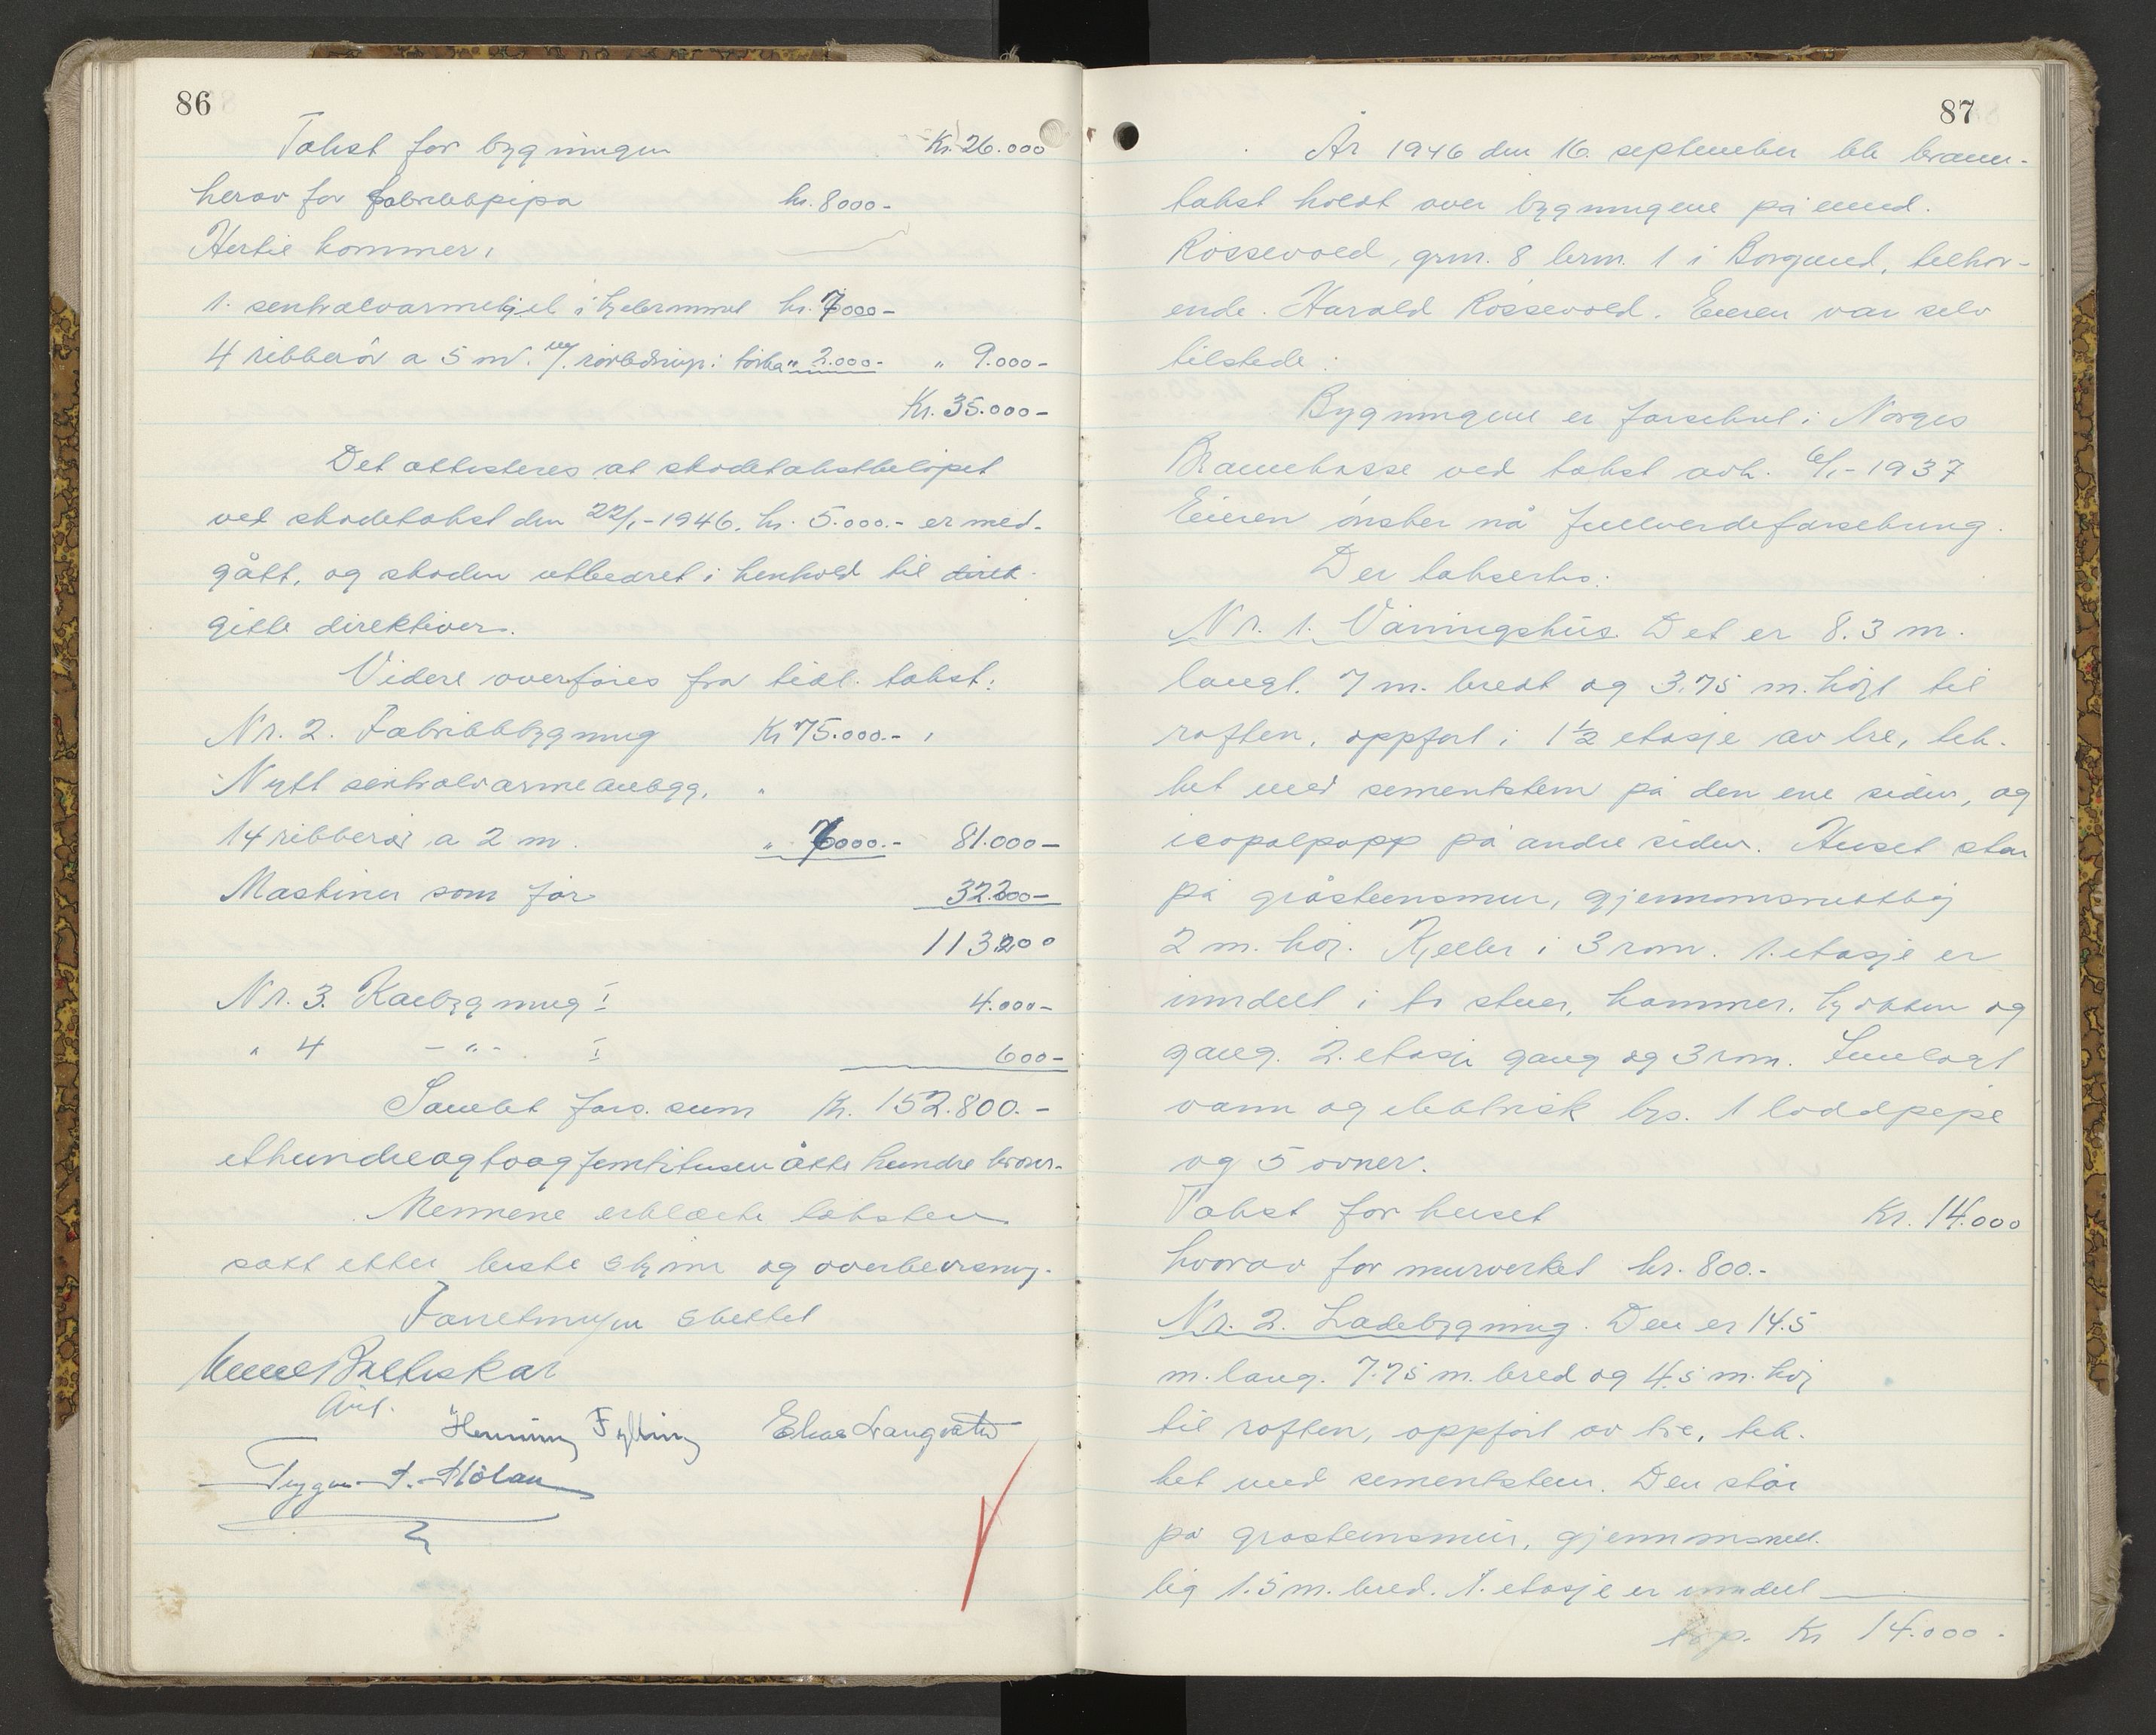 86
Takst for bygningen Kr. 26.000
herav for fabrikkpipa kr. 8000-
Hertil kommer:
1. sentralvarmekjel i kjelerummet kr. 7000-
4 ribberör a 5 m. m/. rörledning i törka " 2.000.- " 9.000-
Kr. 35.000-
Det attesteres at skadetakstbelöpet
ved skadetakst den 22/1-1946, kr. 5.000.- er med-
gått, og skaden utbedret i henhold til direk-
gitte direktiver.
Videre overföres fra tidl. takst:
Nr. 2. Fabrikkbygning Kr 75.000.-
Nytt sentralvarmeanlegg,
14 ribberör a 2 m. " 6000.- 81.000-
Maskiner som för 32.200-
113.200
Nr. 3. Kaibygning I 4.000-
" 4 -"- I 600-
Samlet fors. sum Kr. 152.800.-
etthundreogtoogfemtitusenåtte hundre kroner.
Mennene erklærte taksten
satt etter beste skjönn og overbevisning.
Forretningen sluttet
Henning Fylling Elias Langsæter
Trygve P. Molau
87
År 1946 den 16. september ble brann-
takst holdt over bygningene på eiend.
Rössevold, grnr. 8 brnr. 1 i Borgund, tilhör-
ende. Harald Rössevold. Eieren var selv
tilstede.
Bygningene er forsikret i Norges
Brannkasse ved takst avh. 6/1-1937
Eieren önsker nå fullverdeforsikring.
Der takserts:
Nr. 1. Våningshus. Det er 8.3 m.
langt. 7 m. bredt og 3.75 m. höit til
roften, oppfört i 1½ etasje av tre, tek-
ket med sementstein på den ene siden, og
icopalpapp på andre siden. Huset står
på gråsteinsmur, gjennomsnittlig
2 m. höi. Kjeller i 3 rom. 1. etasje er
inndelt i to stuer, kammer, kjökken og
gang. 2. etasje gang og 3 rom. Innlagt
vann og elektrisk lys. 1 loddpipe
og 5 ovner.
Takst for huset Kr. 14.000
hvorav for murverket kr. 800.-
Nr. 2. Ladebygning. Den er 14.5
m. lang. 7.75 m. bred og 4.5 m. höi
til roften, oppfört av tre, tek-
ket med sementstein. Den står
på gråsteinsmur, gjennomsnitt-
lig 1.5 m. bred. 1. etasje er inndelt
Kr 14.000.